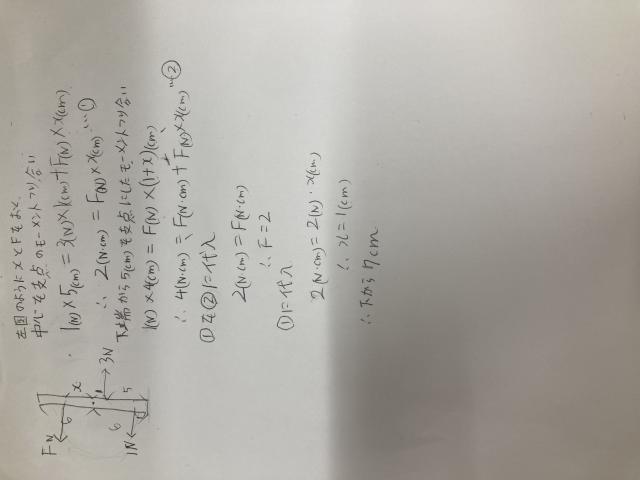 左図のようにxとFをおく。
中心を支点のモーメントつり合い
1(N)×5(cm) = 3(N)×1(cm) + F(N)×x(cm)
∴ 2(N·cm) = F(N)×x(cm) …①
下端から5(cm)を支点にしたモーメントつり合い
1(N)×4(cm) = F(N)×(1+x)(cm)
∴ 4(N·cm) = F(N·cm) + F(N)×x(cm) …②
①を②に代入
2(N·cm) = F(N·cm)
∴ F = 2
①に代入
2(N·cm) = 2(N)·x(cm)
∴ x = 1(cm)
∴下から7cm
FN
6
x
3N
5
6
1N